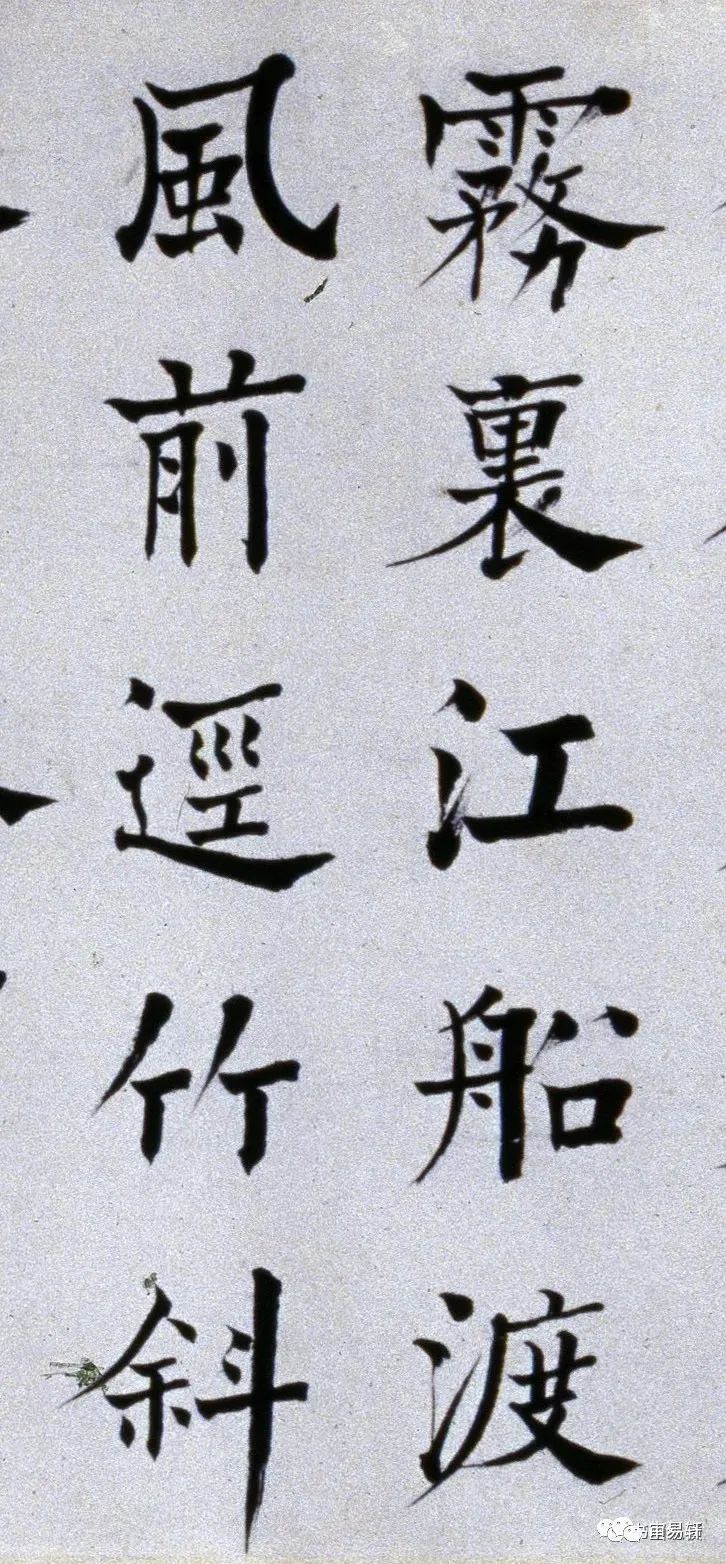 霧裏江船渡
風前逕竹斜